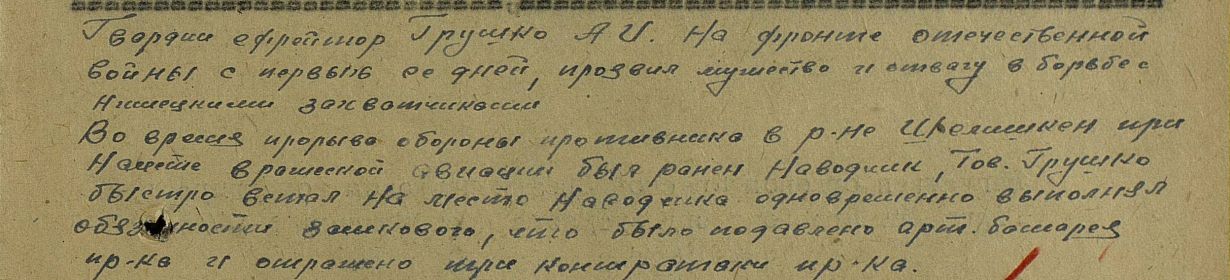 Гвардии ефрейтор Грушко А И. На фронте отечественной
войны с первых ее дней, проявил мужество и отвагу в борьбе с
Нимецкими захватчиками
Во время прорыва обороны противника в р-не при
Налете вражеской авиации был ранен Наводчик, Тов. Грушко
быстро встал на место Наводчика одновременно выполнял
обязанности замкового, что было подавлено арт. батарея
пр-ка и отражено три контратаки пр-ка.